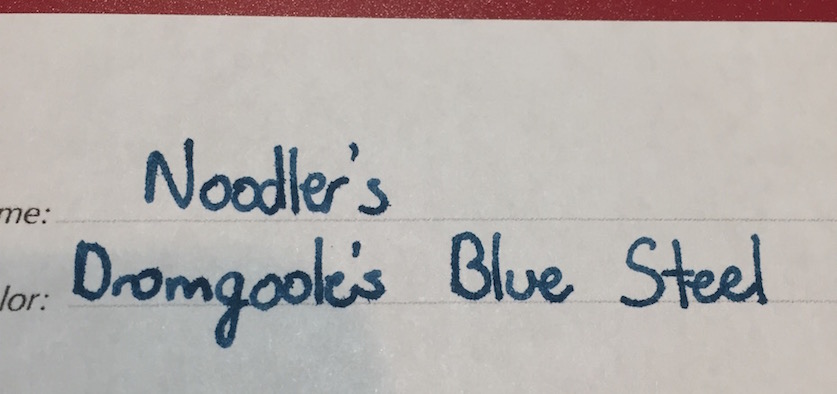 me: Noodler's
lor: Dromgoole's Blue Steel